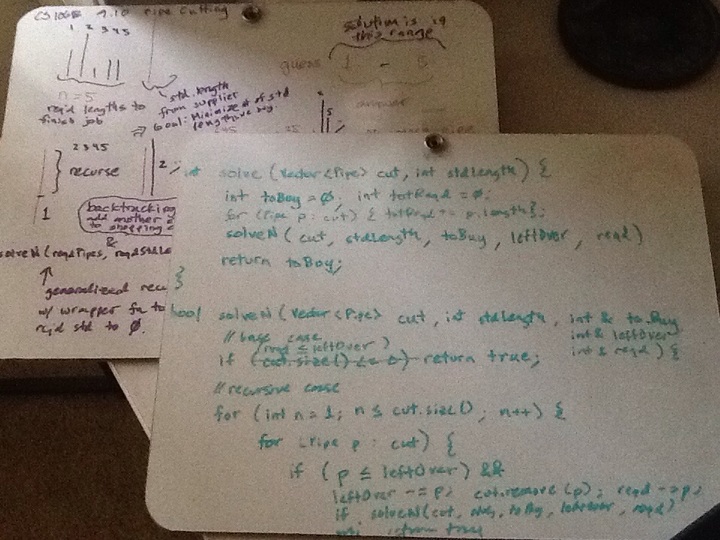 CS106B 7.10 Pipe Cutting
1 2 3 4 5
n = 5
req'd lengths to
finish job
std. length
from supplier
⇒ Goal: Minimize # of std
solution is in
this range
guess 1 - 5
answer
5
2 3 4 5
} recurse
2
1
backtracking
add another
to shopping
&
solveN (reqdPipes, reqdStdLe
↑
generalized recu
w/ wrapper fn to
rqd std to Ø.
int solve (Vector<Pipe> cut, int stdLength) {
int toBuy = Ø; int totReqd = Ø;
for (Pipe p : cut) { totReqd += p.length};
solveN ( cut, stdLength, toBuy, leftOver, reqd)
return toBuy;
}
bool solveN (Vector<Pipe> cut, int stdLength, int & toBuy
int & leftOver
int & reqd ) {
// base case
(reqd ≤ leftOver)
if (cut.size() <= 0) return true;
// recursive case
for (int n = 1; n ≤ cut.size(); n++) {
for (Pipe p : cut) {
if (p ≤ leftOver) &&
leftOver -= p; cut.remove(p); reqd -= p;
if solveN(cut, toBuy, leftover, reqd)
return true